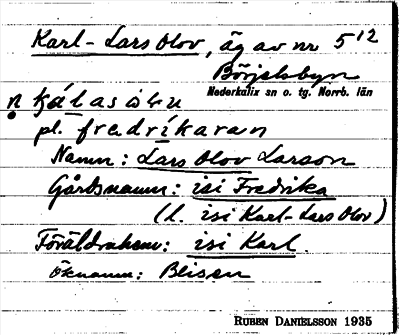 Karl-Lars Olov, äg av nr 5¹²
Börjelsbyn
Nederkalix sn o. tg. Norrb. län
pl. fredrikaran
Namn: Lars Olov Larson
Gårdsnamn: isi Fredrika
(l. isi Karl-Lars Olov)
Föräldrahem: isi Karl.
Öknamn: Bleisen
RUBEN DANIELSSON 1935